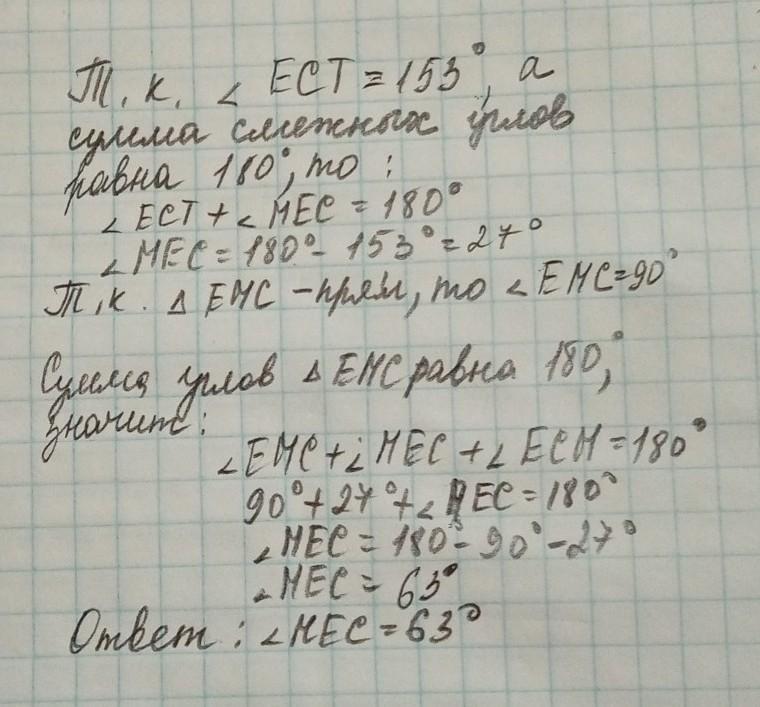 Т. к. ∠ ECT = 153°, а
сумма смежных углов
равна 180°, то :
∠ ECT + ∠ MEC = 180°
∠ MEC = 180° - 153° = 27°
Т. к. △ EMC - прям, то ∠ EMC = 90°
Сумма углов △ EMC равна 180°,
значит :
∠ EMC + ∠ MEC + ∠ ECM = 180°
90° + 27° + ∠ MEC = 180°
∠ MEC = 180° - 90° - 27°
∠ MEC = 63°
Ответ : ∠ MEC = 63°